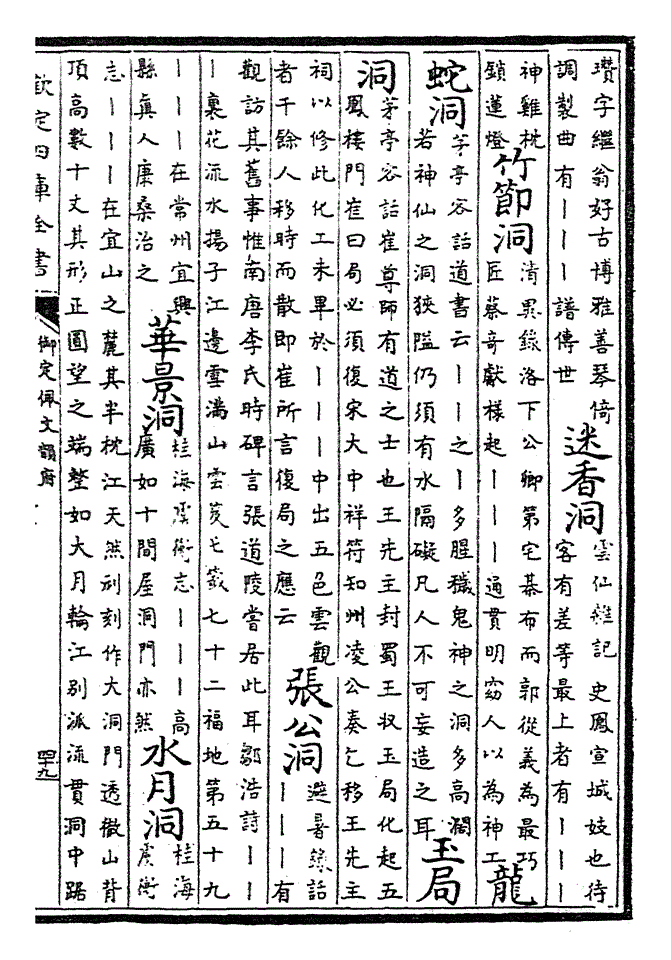 瓚字繼翁好古博雅善琴倚
調製曲有丨丨丨譜傳世
迷香洞
雲仙雜記史鳳宣城妓也待
客有差等最上者有丨丨丨
神雞枕
鎖蓮燈
竹節洞
清異錄洛下公卿第宅棊布而郭從義為最巧
匠蔡奇獻樣起丨丨丨通貫明窈人以為神工
龍
蛇洞
茅亭客話道書云丨丨之丨多腥穢鬼神之洞多高濶
若神仙之洞狹隘仍須有水隔礙凡人不可妄造之耳
玉局
洞
茅亭客話崔尊師有道之士也王先主封蜀王収玉局化起五
鳳樓門崔曰局必須復宋大中祥符知州凌公奏乞移王先主
祠以修此化工未畢於丨丨丨中出五色雲觀
者千餘人移時而散即崔所言復局之應云
張公洞
避暑錄話
丨丨丨有
觀訪其舊事惟南唐李氏時碑言張道陵嘗居此耳鄒浩詩丨丨
丨裏花流水揚子江邊雪滿山雲笈七籤七十二福地第五十九
丨丨丨在常州宜興
縣真人康桑治之
華景洞
桂海虞衡志丨丨丨高
廣如十間屋洞門亦然
水月洞
桂海
虞衡
志丨丨丨在宜山之麓其半枕江天然刓刻作大洞門透徹山背
頂高數十丈其形正圓望之端整如大月輪江別派流貫洞中踞
欽定四庫全書
御定佩文韻府
四十九